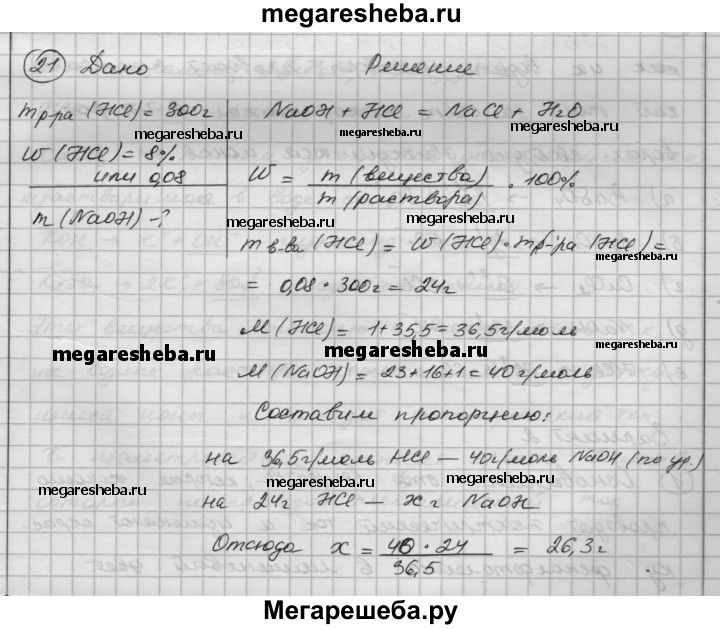 megaresheba.ru
21 Дано Решение
mр-ра (HCl) = 300г NaOH + HCl = NaCl + H2O
megaresheba.ru megaresheba.ru megaresheba.ru
W (HCl) = 8%
или 0,08 W = m (вещества) / m (раствора) · 100%
megaresheba.ru
m (NaOH) - ?
megaresheba.ru
m в-ва (HCl) = W (HCl) · mр-ра (HCl) =
megaresheba.ru
= 0,08 · 300г = 24г
M (HCl) = 1 + 35,5 = 36,5 г/моль
megaresheba.ru megaresheba.ru
M (NaOH) = 23 + 16 + 1 = 40 г/моль
megaresheba.ru
Составим пропорцию:
на 36,5 г/моль HCl — 40 г/моль NaOH (по ур.)
megaresheba.ru megaresheba.ru megaresheba.ru
на 24г HCl — x г NaOH
Отсюда x = 40 · 24 / 36,5 = 26,3 г
megaresheba.ru
Мегарешеба.ру